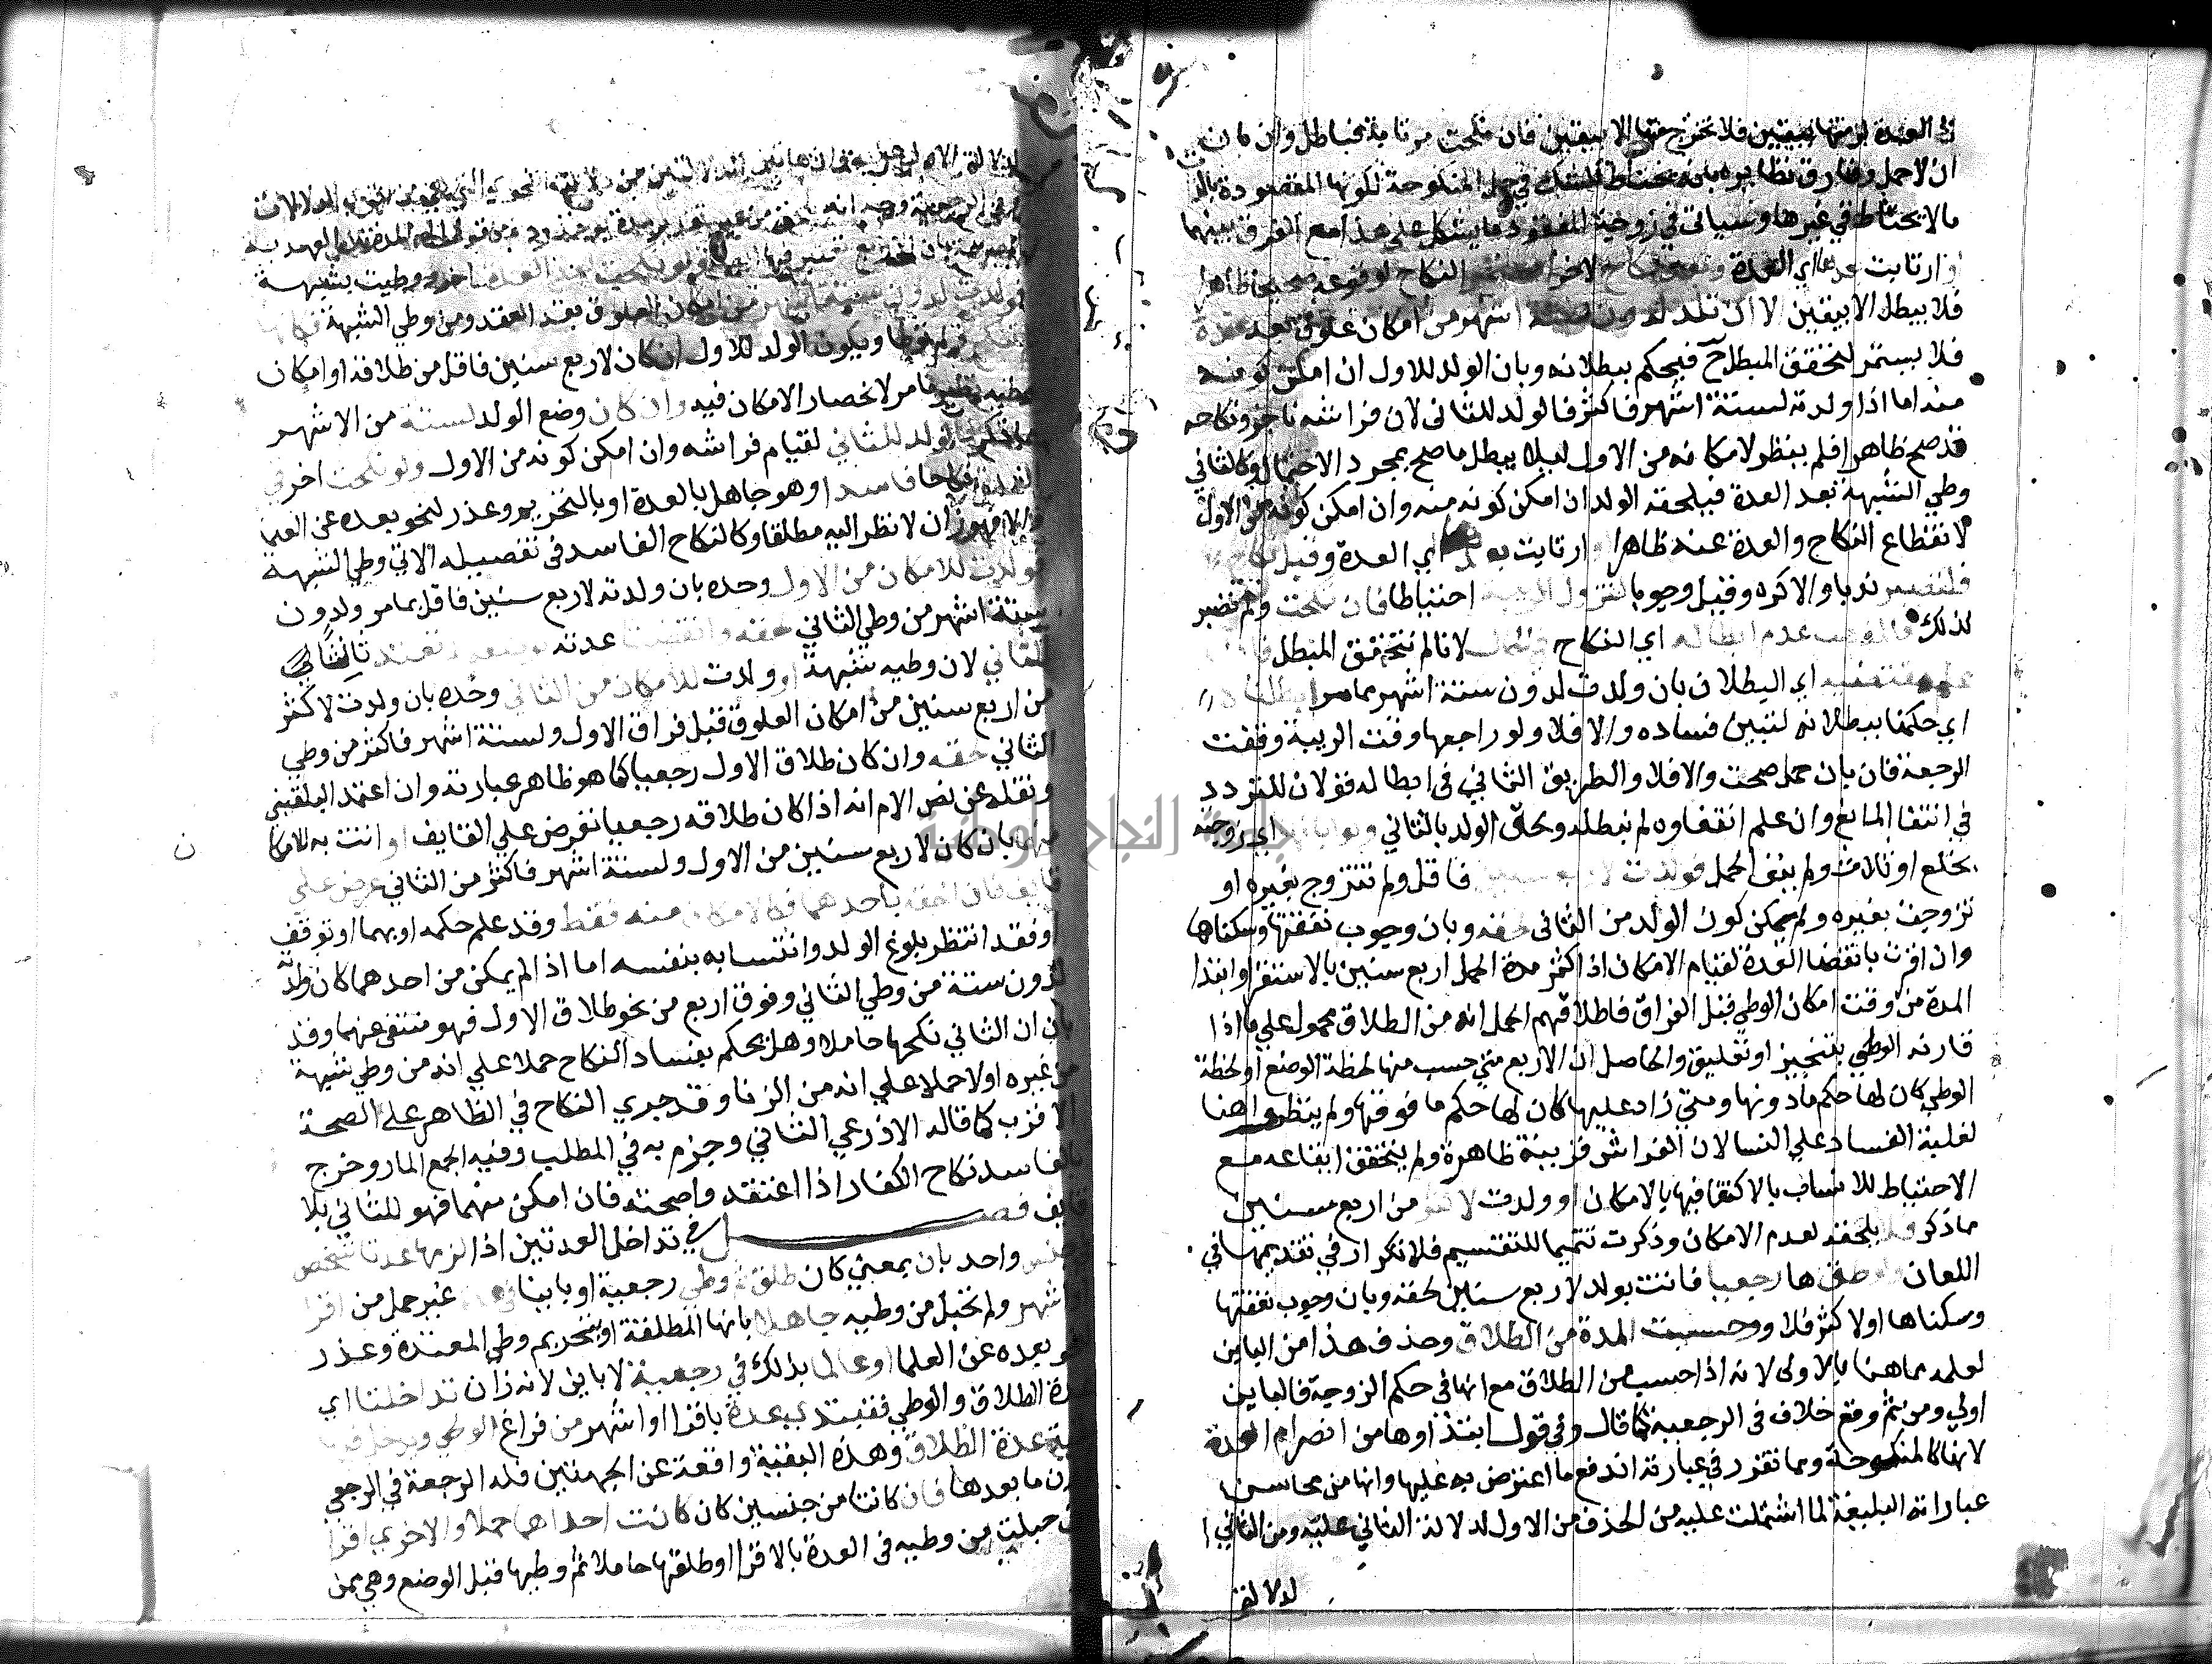 لان العدة لزمتها بيقين فلا تخرج عنها الا بيقين فان نكحت مرتابة فباطل وان بان
ان لا حمل وفارق نظايره بانه يحتاط للشك في حل المنكوحة لكونها المقصودة بالذات
ما لا يحتاط في غيرها وسياتي في زوجة المفقود ما يشكل على هذا مع الفرق بينهما
او ارتابت بعدها اي العدة وبعد نكاح لاخر استمر النكاح لوقوعه صحيحا ظاهرا
فلا يبطل الا بيقين الا ان تلد لدون ستة اشهر من امكان علوق بعد عقده
فلا يستمر لتحقق المبطل ح فيحكم ببطلانه وبان الولد للاول ان امكن كونه
منه اما اذا ولدته لستة اشهر فاكثر فالولد للثاني لان فراشه ناجز ونكاحه
قد صح ظاهرا فلم ينظر لامكانه من الاول ليلا يبطل ما صح بمجرد الاحتمال وكالثاني
وطي الشبهة بعد العدة فيلحقه الولد ان امكن كونه منه وان امكن كونه من الاول
لانقطاع النكاح والعدة عنه ظاهرا او ارتابت بعدها اي العدة وقبل نكاح
فلتصبر ندبا والا كره وقيل وجوبا لتزول الريبة احتياطا فان نكحت ولم تصبر
لذلك فالمذهب عدم ابطاله اي النكاح في الحال لانا لم نتحقق المبطل فان
علم مقتضيه اي البطلان بان ولدت لدون ستة اشهر مما مر ابطلناه
اي حكمنا ببطلانه لتبين فساده والا فلا ولو راجعها وقت الريبة وقفت
الرجعة فان بان حمل صحت والا فلا والطريق الثاني في ابطاله قولان للتردد
في انتفا المانع وان علم انتفاوه لم نبطله ولحق الولد بالثاني ولو ابانها اي زوجته
بخلع او ثلاث ولم ينف الحمل فولدت لاربع سنين فاقل ولم تتزوج بغيره او
تزوجت بغيره ولم يمكن كون الولد من الثاني لحقه وبان وجوب نفقتها وسكناها
وان اقرت بانقضا العدة لقيام الامكان اذ اكثر مدة الحمل اربع سنين بالاستقرا وابتدا
المدة من وقت امكان الوطي قبل الفراق فاطلاقهم الحمل انه من الطلاق محمول علي ما اذا
قارنه الوطي بتنجيز او تعليق والحاصل ان الاربع متي حسب منها لحظة الوضع او لحظة
الوطي كان لها حكم ما دونها ومتي زاد عليها كان لها حكم ما فوقها ولم ينظروا هنا
لغلبة الفساد علي النسا لان الفراش قرينة ظاهرة ولم يتحقق انقطاعه مع
الاحتياط للانساب بالاكتفا فيها بالامكان او ولدت لاكثر من اربع سنين
مما ذكر فلا يلحقه لعدم الامكان وذكرت تتميما للتقسيم فلا تكرار في تقديمها في
اللعان ولو طلقها رجعيا فاتت بولد لاربع سنين لحقه وبان وجوب نفقتها
وسكناها او لاكثر فلا وحسبت المدة من الطلاق وحذف هذا من الباين
لعلمه مما هنا بالاولى لانه اذا حسب من الطلاق مع انها في حكم الزوجة فالباين
اولي ومن ثم وقع خلاف في الرجعية كما قال وفي قول ابتداوها من انصرام العدة
لانها كالمنكوحة ومما تقرر في عبارته اندفع ما اعترض به عليها وانها من محاسن
عباراته البليغة لما اشتملت عليه من الحذف من الاول لدلالة الثاني عليه ومن الثاني
لدلالة
ويكون الولد للاول ان كان لاربع سنين فاقل من طلاقه او امكان
وطئه نظير ما مر لانحصار الامكان فيه وان كان وضع الولد لستة من الاشهر
فاكثر فالولد للثاني لقيام فراشه وان امكن كونه من الاول ولو نكحت اخر في
العدة نكاحا فاسدا وهو جاهل بالعدة او بالتحريم وعذر لنحو بعده عن العلما
ان لا نظر اليه مطلقا وكالنكاح الفاسد في تفصيله الاتي وطي الشبهة
فولدت للامكان من الاول وحده بان ولدته لاربع سنين فاقل مما مر ولدون
ستة اشهر من وطي الثاني لحقه وانقضت عدته بوضعه ثم تعتد ثانيا
للثاني لان وطيه شبهة او ولدت للامكان من الثاني وحده بان ولدت لاكثر
من اربع سنين من امكان العلوق قبل فراق الاول ولستة اشهر فاكثر من وطي
الثاني لحقه وان كان طلاق الاول رجعيا كما هو ظاهر عبارته وان اعتمد البلقيني
ونقله عن نص الام انه اذا كان طلاقه رجعيا تعرض علي القايف او اتت به للامكان
منهما بان كان لاربع سنين من الاول ولستة اشهر فاكثر من الثاني عرض علي
قايف فان الحقه باحدهما فكالامكان منه فقط وقد علم حكمه او بهما او توقف
او فقد انتظر بلوغ الولد وانتسابه بنفسه اما اذا لم يمكن من احدهما كان ولدته
لدون ستة من وطي الثاني وفوق اربع من نحو طلاق الاول فهو منتف عنهما وقد
بان ان الثاني نكحها حاملا وهل يحكم بفساد النكاح حملا علي انه من وطي شبهة
من غيره او لا حملا علي انه من الزنا وقد جري النكاح في الظاهر على الصحة
الاقرب كما قاله الاذرعي الثاني وجزم به في المطلب وفيه الجمع المار وخرج
بالفاسد نكاح الكفار اذا اعتقدوا صحته فان امكن منهما فهو للثاني بلا
قايف فصل في تداخل العدتين اذا لزمها عدتا شخص
من جنس واحد بان بمعني كان طلق ثم وطي رجعية او باينا في عدة غير حمل من اقرا
او اشهر ولم تحبل من وطيه جاهلا بانها المطلقة او بتحريم وطي المعتدة وعذر
لنحو بعده عن العلما او عالما بذلك في رجعية لا باين لانه زان تداخلتا اي
عدة الطلاق والوطي فتبتدي عدة باقرا او اشهر من فراغ الوطي ويدخل فيها
بقية عدة الطلاق وهذه البقية واقعة عن الجهتين فله الرجعة في الرجعي
دون ما بعدها فان كانتا من جنسين كان كانت احداهما حملا والاخري اقرا
بان حبلت من وطيه في العدة بالاقرا او طلقها حاملا ثم وطيها قبل الوضع وهي ممن